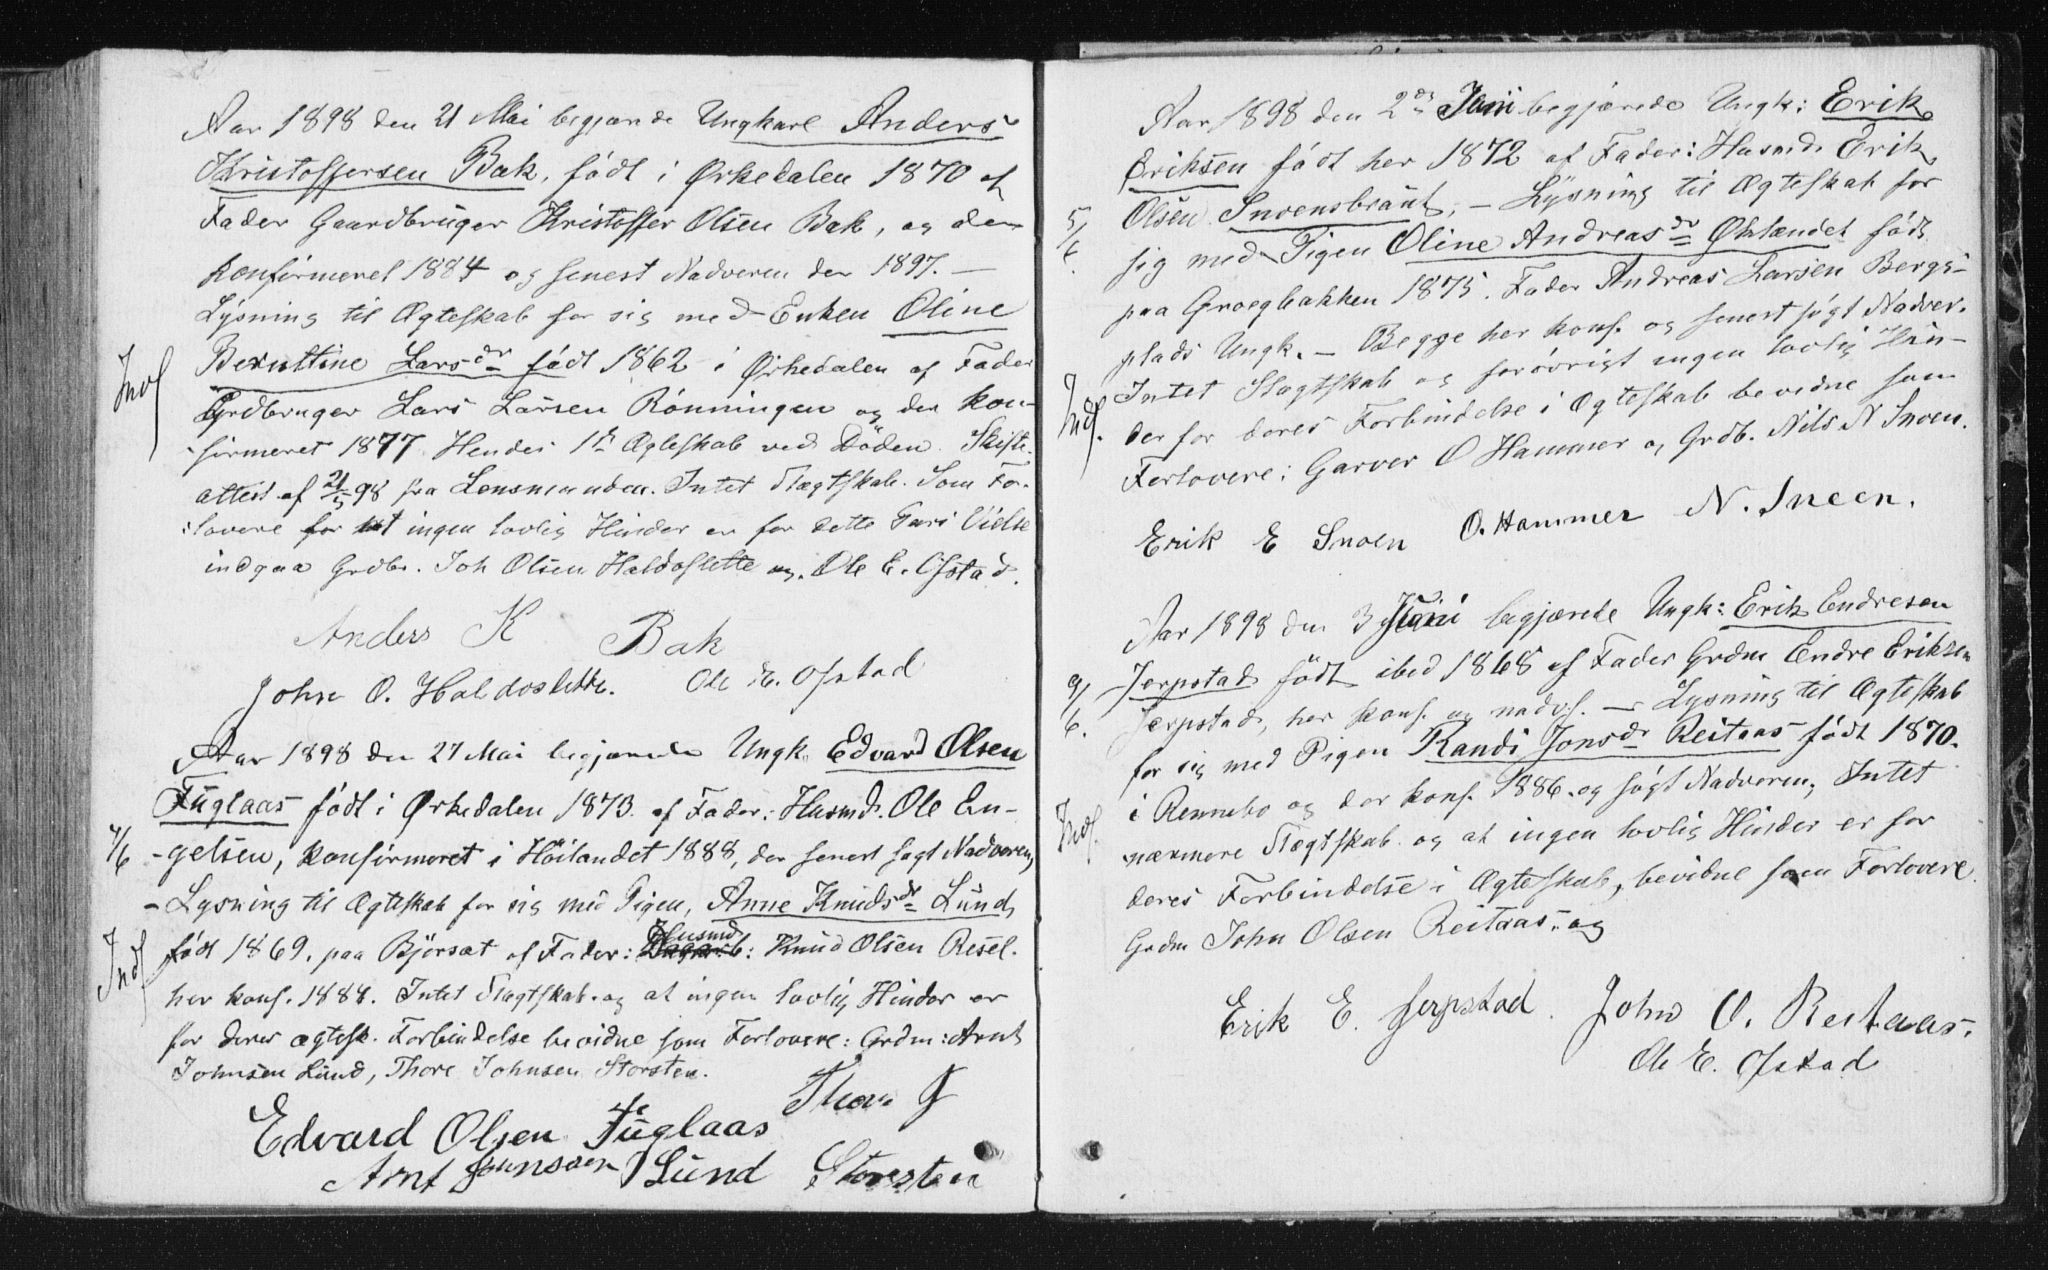 Aar 1898 den 21 Mai begjærede Ungkarl Anders
Kristoffersen Bak, födt i Ørkedalen 1870 af
Fader Gaardbruger Kristoffer Olsen Bak, og der
konfirmeret 1884 og senest Nadveren der 1897. —
Lysning til Ægteskab for sig med Enken Oline
Berntine Larsdr födt 1862 i Ørkedalen af Fader
Indf
Grdbruger Lars Larsen Rönningen og der kon-
firmeret 1877. Hendes 1ste Ægteskab ved Döden. Skifte-
attest af 21/5 98 fra Lensmanden. Intet Slægtskab. Som For-
lovere for at ingen lovlig Hinder er for dette Pars Vielse
indgaa Grdbr. Joh Olsen Haldoslette og. Ole E. Ofstad.
Anders K Bak
John O. Haldoslette. Ole E. Ofstad
Aar 1898 den 27 Mai begjærede Ungk. Edvard Olsen
Fuglaas födt i Ørkedalen 1873. af Fader: Husmd. Ole En-
7/6
-gelsen, konfirmeret i Höilandet 1888, der senest sögt Nadveren,
- Lysning til Ægteskab for sig med Pigen, Anne Knudsdr Lund,
födt 1869. paa Björsæt af Fader: Husmd: Knud Olsen Resel.
Indf
her konf. 1884. Intet Slægtskab. og at ingen lovlig Hinder er
for deres ægtesk. Forbindelse bevidne som Forlovere: Grdm: Arnt
Johnsen Lund, Thore Johnsen Storsten.
Thore J
Edvard Olsen Fuglaas
Arnt Johnsen Lund Storsten
Aar 1898 den 2den Juni begjærede Ungk: Erik
Eriksen födt her 1872 af Fader: Husmd. Erik
Olsen Snoensbraut, — Lysning til Ægteskab for
5/6.
sig med Pigen Oline Andreasdr Øhlandet født
paa Groegbakken 1875. Fader Andreas Larsen Bergs-
plads Ungk. — Begge her konf. og senest sögt Nadver.
Intet Slægtskab og forövrigt ingen lovlig Hin-
Indf.
der for deres Forbindelse i Ægteskab bevidne som
Forlovere: Garver O Hammer og Grdb. Nils N Snoen.
Erik E Snoen O. Hammer N. Sneen.
Aar 1898 den 3 Juni begjærede Ungk: Erik Endresen
Jerpstad födt ibid 1868 af Fader Grdm Endre Eriksen
9/6.
Jerpstad, her konf. og nadvf. — Lysning til Ægteskab
for sig med Pigen Randi Jonsdr Reitaas födt 1870.
i Rennebo og der konf. 1886. og sögt Nadveren, Intet
Indf.
nærmere Slægtskab. og at ingen lovlig Hinder er for
deres Forbindelse i Ægteskab, bevidne som Forlovere.
Grdm John Olsen Reitaas, og
Erik E. Jerpstad. John O. Reitaas.
Ole E. Ofstad